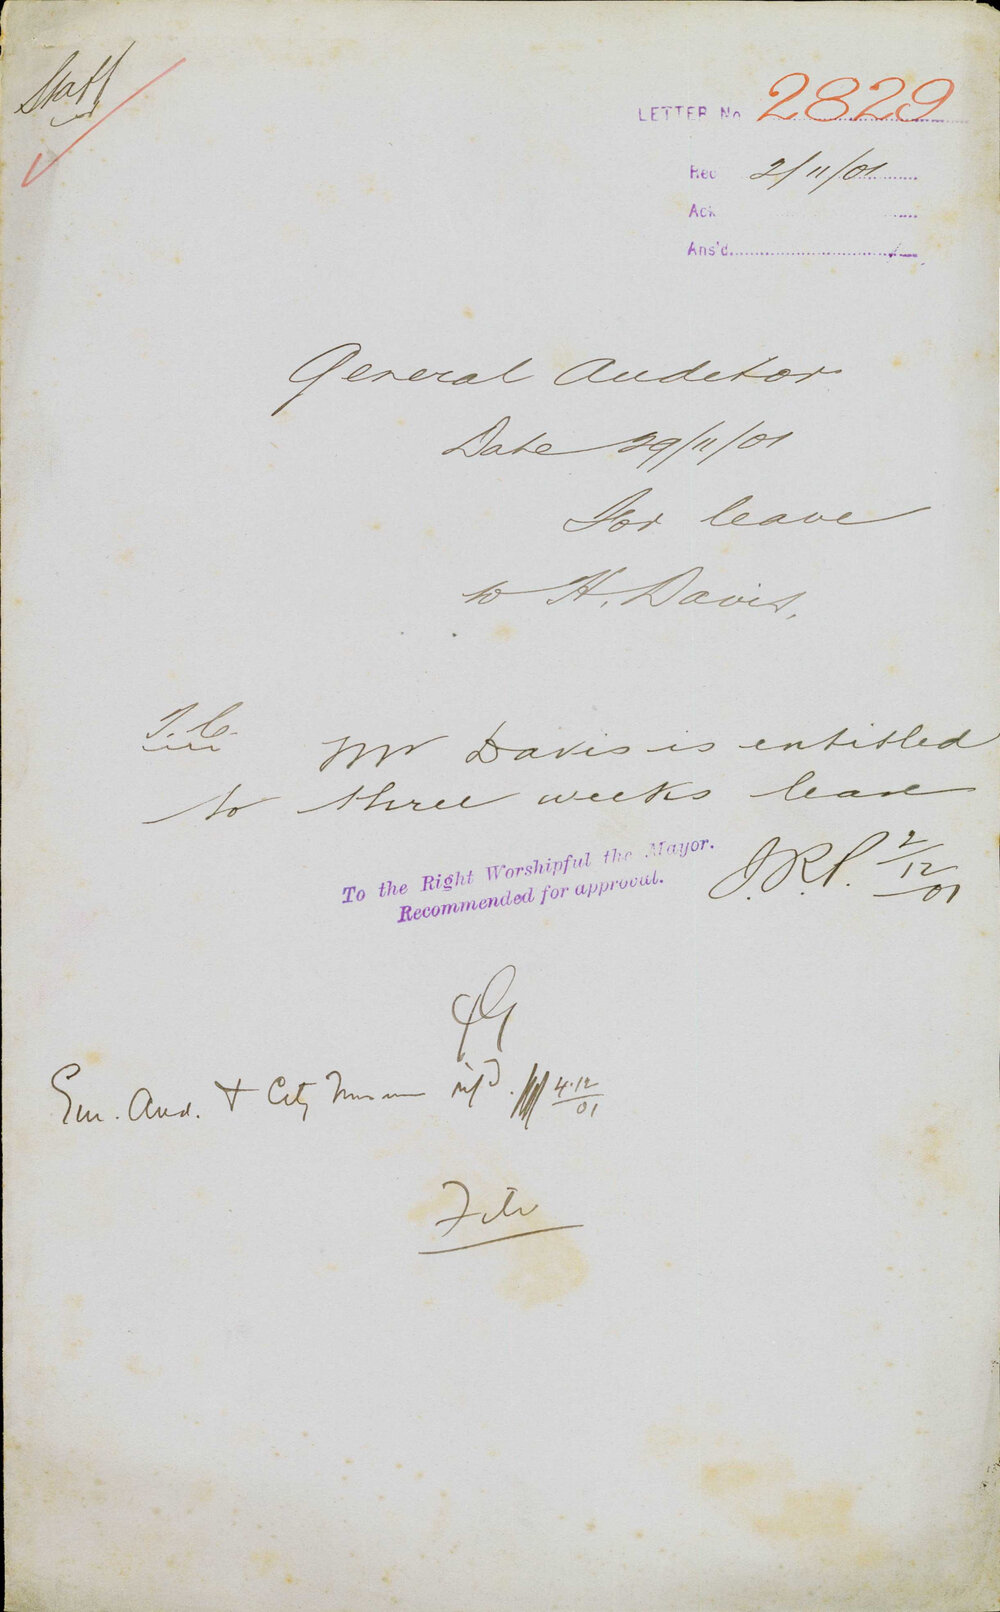 Staff
LETTER No 2829
Rec 2/11/01
Ack
Ans'd
General Auditor
Date 29/11/01
For leave
to H. Davis,
T.C.
Mr Davis is entitled
to three weeks leave
J.R.P. 2/12/01
To the Right Worshipful the Mayor.
Recommended for approval.
Gen. Aud. + City inf'd. 4.12/01
File